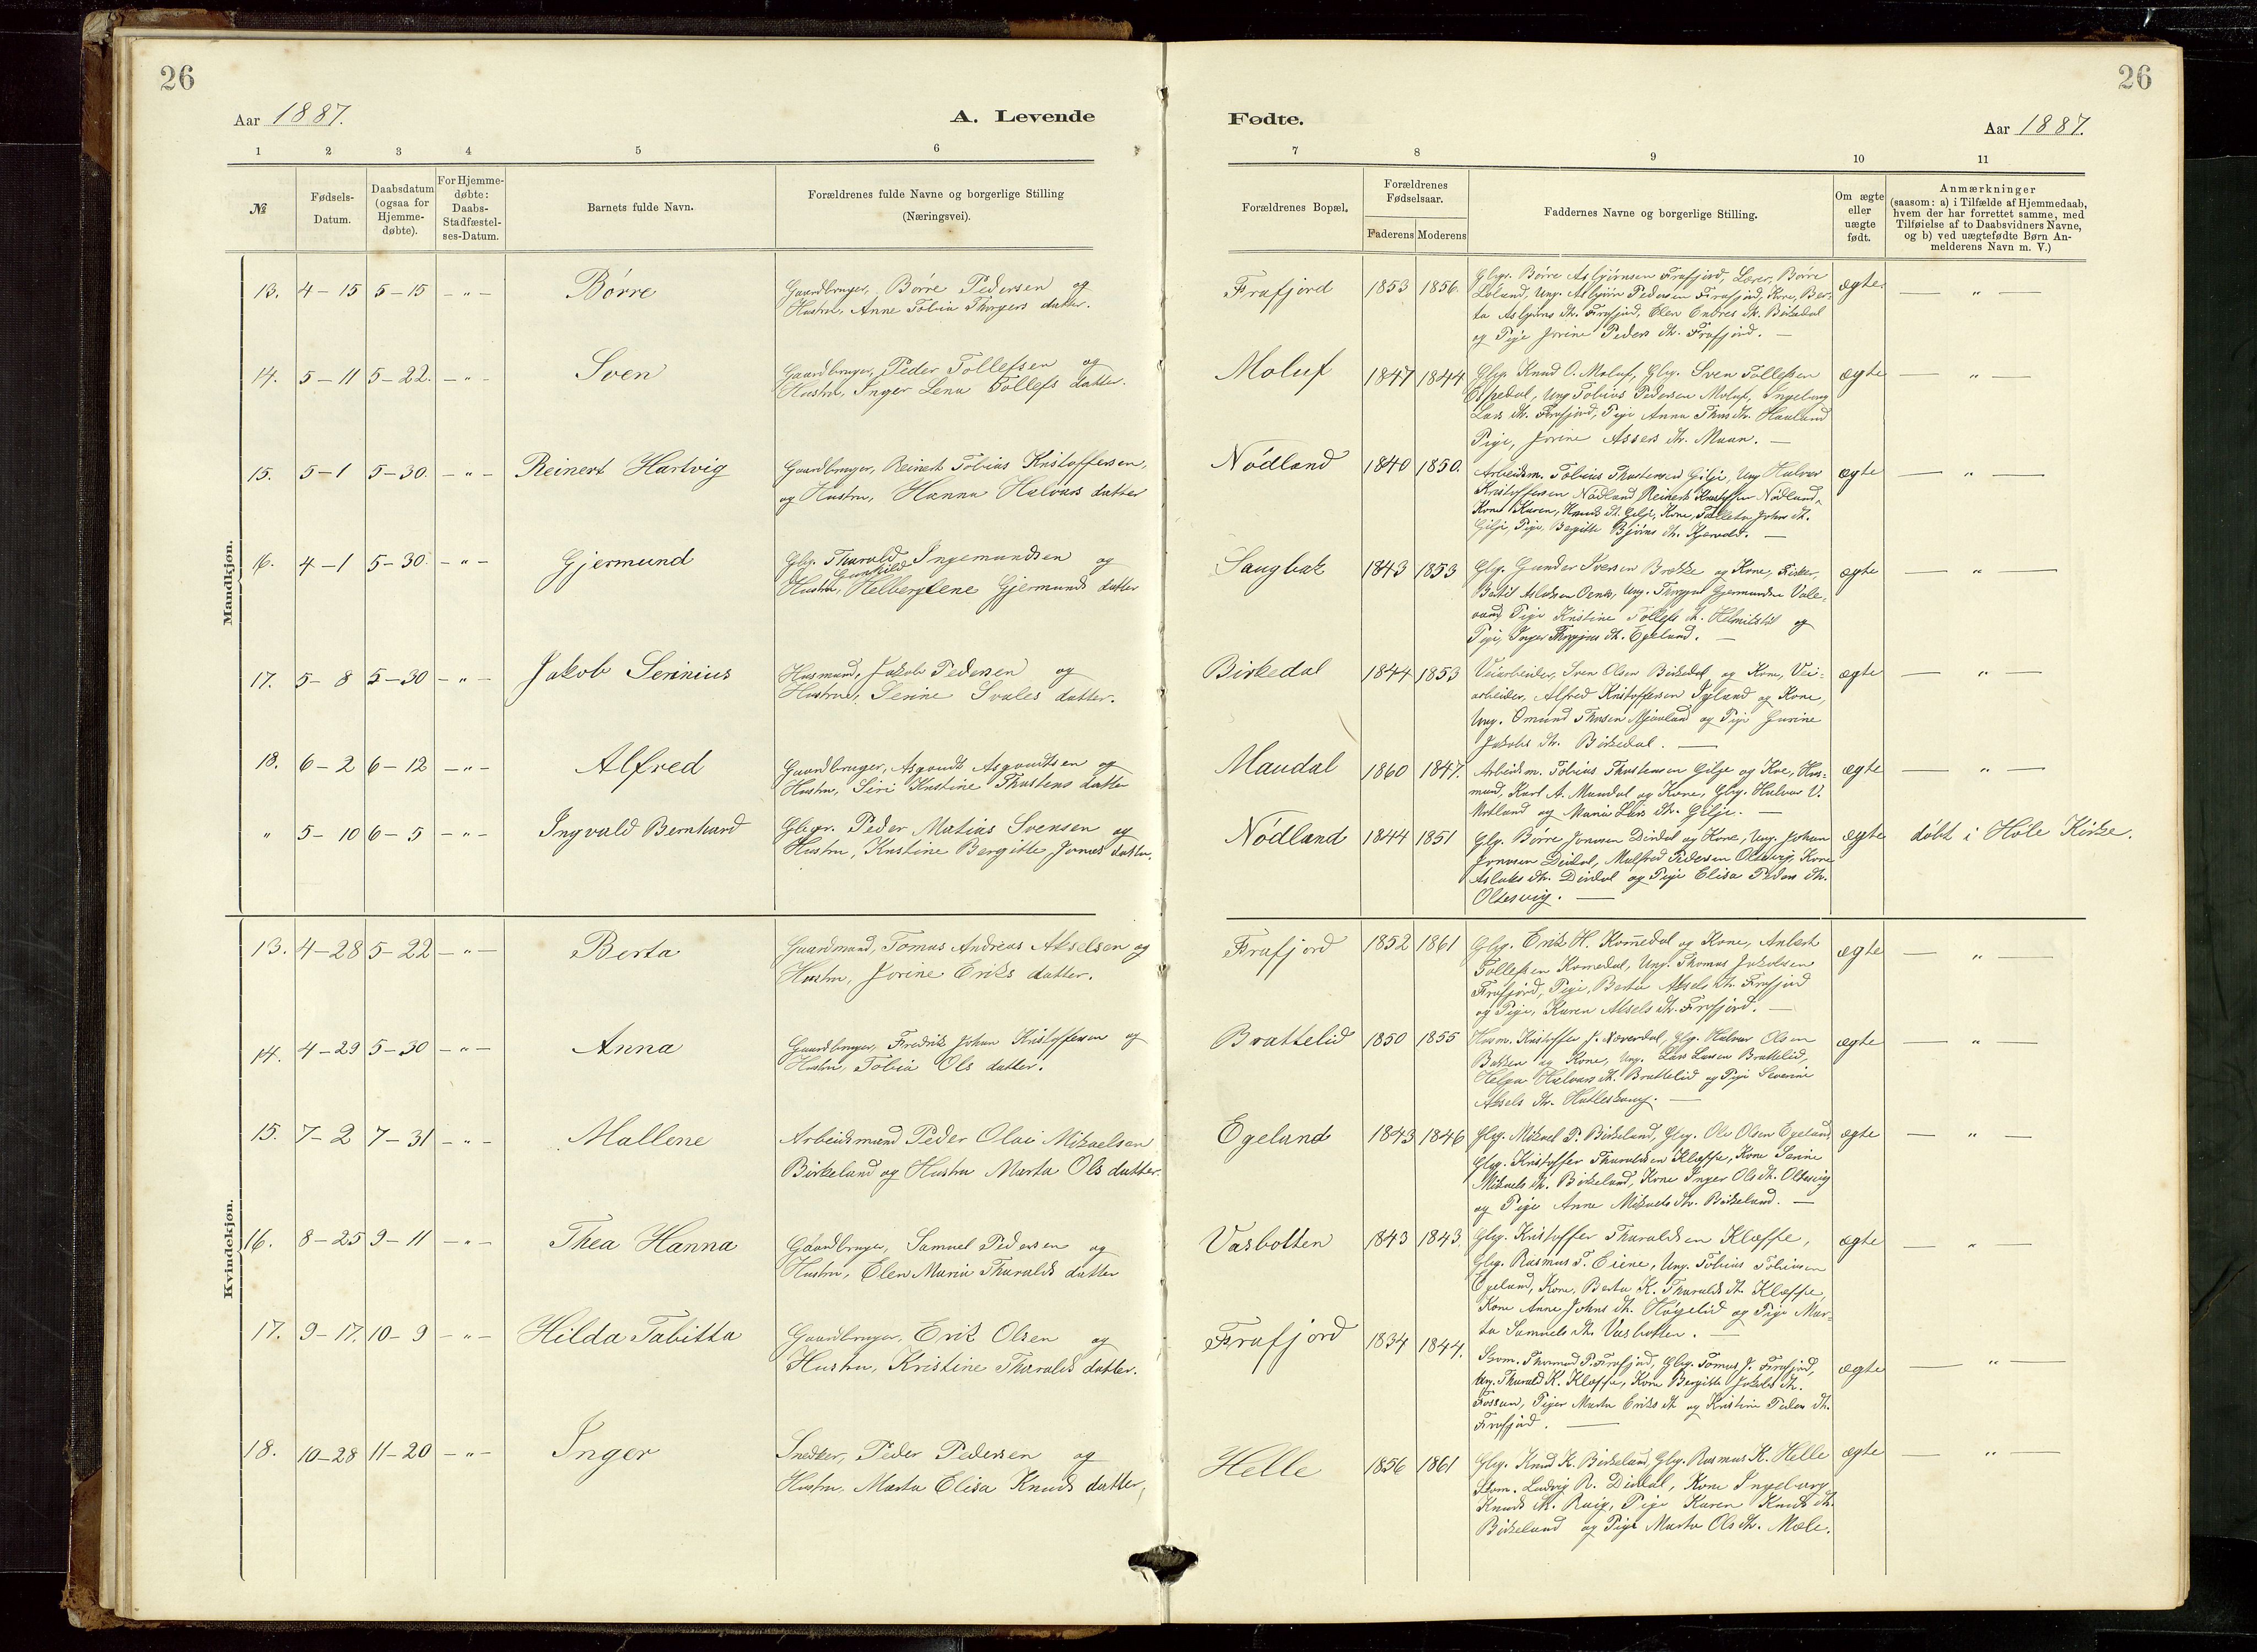 26
Aar 1887.
A. Levende
1 2 3 4 5 6
№
Fødsels-
Datum.
Daabsdatum
(ogsaa for
Hjemme-
døbte).
For Hjemme-
døbte:
Daabs-
Stadfæstel-
ses-Datum.
Barnets fulde Navn.
Forældrenes fulde Navne og borgerlige Stilling
(Næringsvei).
Mandkjøn.
13. 4-15 5-15 - " - Børre
Gaardbruger, Børre Pedersen og
Hustru, Anne Tobia Thorgers datter.
14. 5-11 5-22. - " - Sven
Gaardbruger, Peder Tollefsen og
Hustru, Inger Lena Tollefs datter.
15. 5-1 5-30. - " - Reinert Hartvig
Gaardbruger, Reinert Tobias Kristoffersen,
og Hustru, Hanna Halvars datter
16. 4-1 5-30. - " - Gjermund
Gbg. Tharald Ingemundsen og
Gunhild
Hustru, Helberglene Gjermunds datter
17. 5-8 5-30 - " - Jakob Serinius
Husmand, Jakob Pedersen og
Hustru, Serine Svales datter.
18. 6-2 6-12 - " - Alfred
Gaardbruger, Asgaudt Asgaudtsen og
Hustru, Siri Kristine Thorstens datter
" 5-10 6-5 - " - Ingvald Bernhard
Gbgr. Peder Matias Svensen og
Hustru, Kristine Bergitte Jonas datter.
Kvindekjøn.
13. 4-28 5-22 - " - Berta
Gaardmand, Tomas Andreas Akselsen og
Hustru, Jorine Eriks datter.
14. 4-29 5-30 - " - Anna
Gaardbruger, Fredrik Johan Kristoffersen og
Hustru, Tobia Ols datter.
15. 7-2 7-31 - " - Mallene
Arbeidsmand Peder Olai Mikaelsen
Birkeland og Hustru Marta Ols datter.
16. 8-25 9-11 - " - Thea Hanna
Gaardbruger, Samuel Pedersen og
Hustru, Elen Maria Tharalds datter
17. 9-17. 10-9 - " - Hilda Tabitta
Gaardbruger, Erik Olsen og
Hustru, Kristine Tharalds datter.
18. 10-28 11-20 - " - Inger
Snedker, Peder Pedersen og
Hustru, Marta Elisa Knuds datter,
26
Fødte.
Aar 1887.
7 8 9 10 11
Forældrenes Bopæl.
Forældrenes
Fødselsaar.
Faderens Moderens
Faddernes Navne og borgerlige Stilling.
Om ægte
eller
uægte
født.
Anmærkninger
(saasom: a) i Tilfælde af Hjemmedaab,
hvem der har forrettet samme, med
Tilføielse af to Daabsvidners Navne,
og b) ved uægtefødte Børn An-
melderens Navn m. V.)
Frafjord 1853 1856. ægte. — " —
Gbgr. Børre Asbjørnsen Frafjord, Lærer, Børre
Løland, Ung. Asbjørn Pedersen Frafjord, Kone, Ber-
ta Asbjørns dtr. Frafjord, Elen Endres dtr. Birkedal
og Pige Jorine Peders dtr. Frafjord. —
Moluf 1847 1844 ægte — " —
Gbgr. Knud O. Moluf, Gbg. Sven Tollefsen
Espedal, Ung Tobias Pedersen Moluf, Ingeborg
Lars dtr. Frafjord, Pige Anna Thors dtr. Haaland
Pige, Jorine Assers dtr. Maan. —
Nødland 1840 1850. ægte — " —
Arbeidsm. Tobias Thorstensen Gilje, Ung Halvar
Kristoffersen Nødland, Reinert Kristoffer Nødland,
Kone Karen, Knuds dt. Gilje, Kone, Johns dt.
Gilje, Pige, Bergitte Bjørns dtr.
Saugbak 1843 1853 ægte — " —
Gbg. Gunder Iversen Brække og Kone, Fisker,
Bertil Aslaksen Ung. Gjermundsen Vale-
vand, Pige Kristine Tollefs dt. og
Pige, Inger dt. Egeland. —
Birkedal 1844 1853 ægte — " —
Veiarbeider, Sven Olsen Birkedal og Kone, Vei-
arbeider, Alfred Kristoffersen og Kone,
Ung. Omund Thorsen Mjaaland og Pige Gurine
Jakobs dtr. Birkedal. —
Maudal 1860 1847. ægte — " —
Arbeidsm. Tobias Thorstensen Gilje og Kone, Hus-
mand, Karl A. Maudal og Kone, Gbg. Halvar V.
og Maria Lars dtr. Gilje. —
Nødland 1844 1851 ægte døbt i Hole Kirke.
Gbg. Børre Jonassen Dirdal og Kone, Ung. Johan
Jonassen Dirdal, Malfred Pedersen Oltesvig, Kone
Aslaks dtr. Dirdal og Pige Elisa Peders dtr.
Oltesvig. —
Frafjord 1852 1861 ægte — " —
Gbg. Erik H. Komedal og Kone, Anbert
Tollefsen Komedal, Ung. Thomas Jakobsen
Frafjord, Pige, Berta Aksels dtr. Frafjord
og Pige, Karen Aksels dtr. Frafjord. —
Brattelid 1850 1855 ægte — " —
Husm. Kristoffer J. Næverdal, Gbg. Halvar Olsen
Bakken og Kone, Ung. Lars Larsen Brattelid,
Helga Halvars dt. Brattelid og Pige Severine
Aksels dtr. Hatleskaug. —
Egeland 1843 1846 ægte — " —
Gbg. Mikael P. Birkeland, Gbg. Ole Olsen Egeland
Gbg. Kristoffer Tharaldsen Kleppe, Kone Serine
Mikaels dt. Birkeland, Kone Inger Ols dt. Oltesvig
og Pige Anne Mikaels dtr. Birkeland. —
Vasbotten 1843 1843. ægte — " —
Gbg. Kristoffer Tharaldsen Kleppe,
Gbg. Rasmus T. Eiene, Ung. Tobias Tobiasen
Egeland, Kone, Berta K. Tharalds dt. Kleppe,
Kone Anne Johns dt. Høgelid og Pige Mar-
ta Samuels dt. Vasbotten. —
Frafjord 1834 1844. ægte — " —
Skom. Thormod P. Frafjord, Gbg. Tomas J. Frafjord,
Ung. Tharald K. Kleppe, Kone Bergitte Jakobs dtr.
Fossan, Piger Marta Eriks dt og Kristine Peders dt.
Frafjord. —
Helle 1856 1861 ægte — " —
Gbg. Knud K. Birkeland, Gbg. Rasmus K. Helle
Skom. Ludvig R. Dirdal, Kone Ingeborg
Knuds dt. Pige Karen Knuds dt.
Birkeland og Pige Marta Ols dt. Mæle.